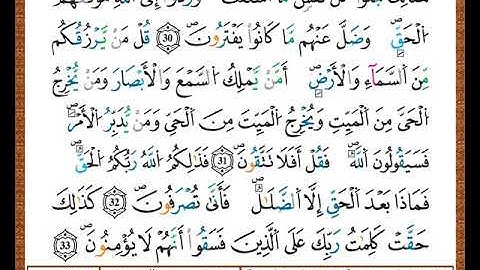 ٱلْحَقِّ ۖ وَضَلَّ عَنْهُم مَّا كَانُوا۟ يَفْتَرُونَ ۝٣٠ قُلْ مَن يَرْزُقُكُم
مِّنَ ٱلسَّمَآءِ وَٱلْأَرْضِ أَمَّن يَمْلِكُ ٱلسَّمْعَ وَٱلْأَبْصَٰرَ وَمَن يُخْرِجُ
ٱلْحَىَّ مِنَ ٱلْمَيِّتِ وَيُخْرِجُ ٱلْمَيِّتَ مِنَ ٱلْحَىِّ وَمَن يُدَبِّرُ ٱلْأَمْرَ ۚ
فَسَيَقُولُونَ ٱللَّهُ ۚ فَقُلْ أَفَلَا تَتَّقُونَ ۝٣١ فَذَٰلِكُمُ ٱللَّهُ رَبُّكُمُ ٱلْحَقُّ ۖ
فَمَاذَا بَعْدَ ٱلْحَقِّ إِلَّا ٱلضَّلَٰلُ ۖ فَأَنَّىٰ تُصْرَفُونَ ۝٣٢ كَذَٰلِكَ
حَقَّتْ كَلِمَتُ رَبِّكَ عَلَى ٱلَّذِينَ فَسَقُوٓا۟ أَنَّهُمْ لَا يُؤْمِنُونَ ۝٣٣